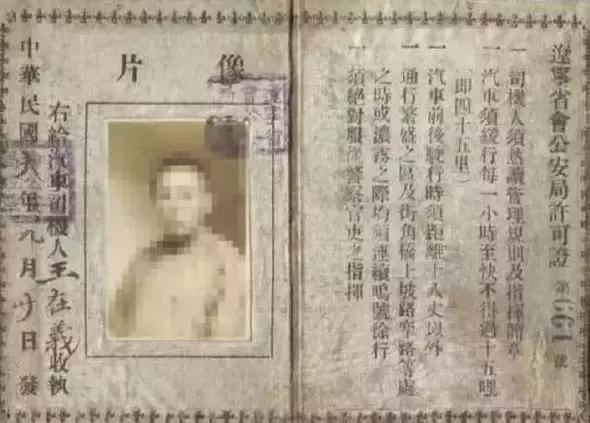 遼寧省會公安局許可證 第661號
一 司機人須熟讀管理規則及指揮簡章
一 汽車須緩行每一小時至快不得過十五哩
(即四十五里)
一 汽車前後駛行時須距離十八丈以外
一 通行繁盛之區及街角橋上坡路窄路等處
之時或濃霧之際均須連續鳴號徐行
一 須絕對服從警察官吏之指揮
像片
右給汽車司機人王在義收執
中華民國十八年九月 日發